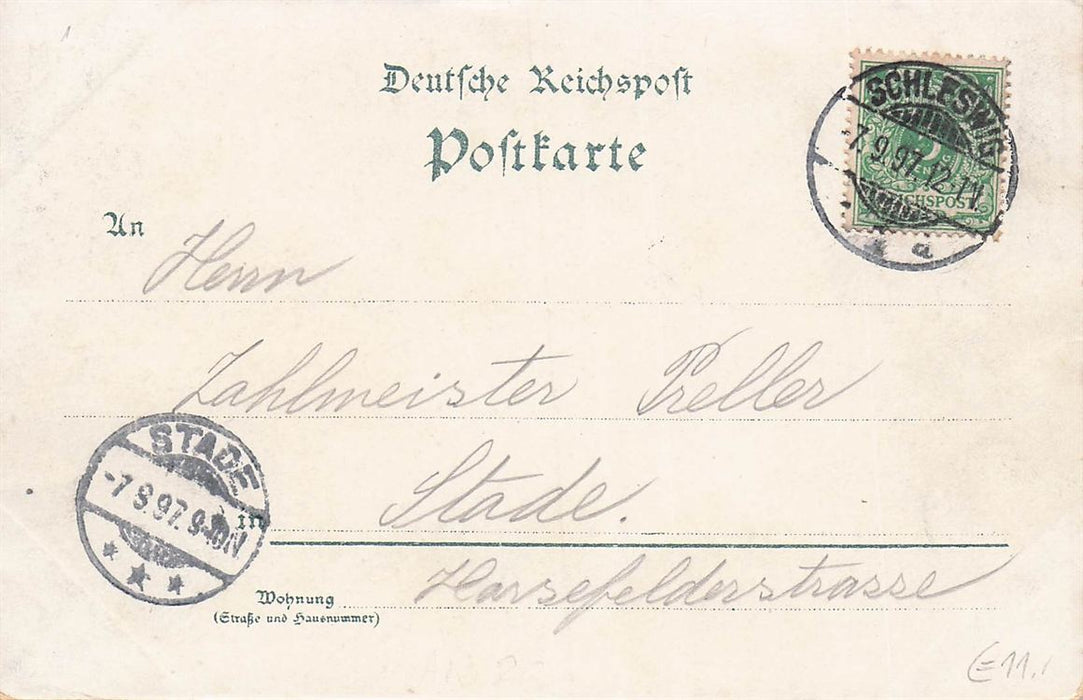 Deutsche Reichspost
Postkarte
SCHLESWIG
7.9.97.12-1N.
REICHSPOST
a
An
Herrn
Zahlmeister Preller
STADE
-7 9 97. 9-10N
in
Stade.
Wohnung
(Straße und Hausnummer)
Harsefelderstrasse
E11.